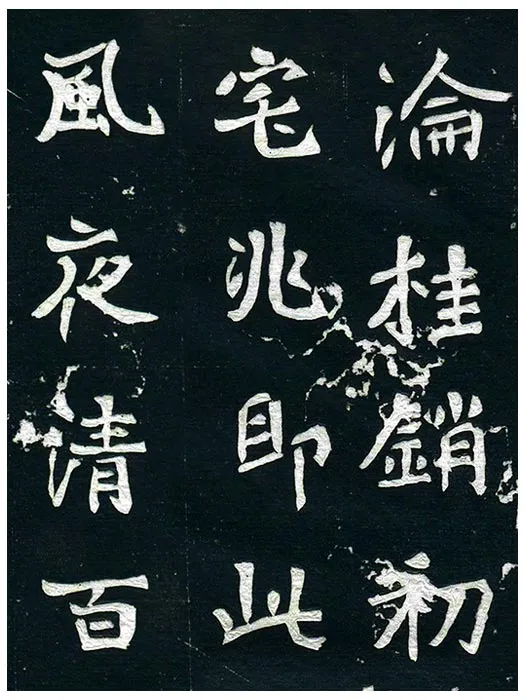 淪桂銷初
宅兆即此
風夜清百